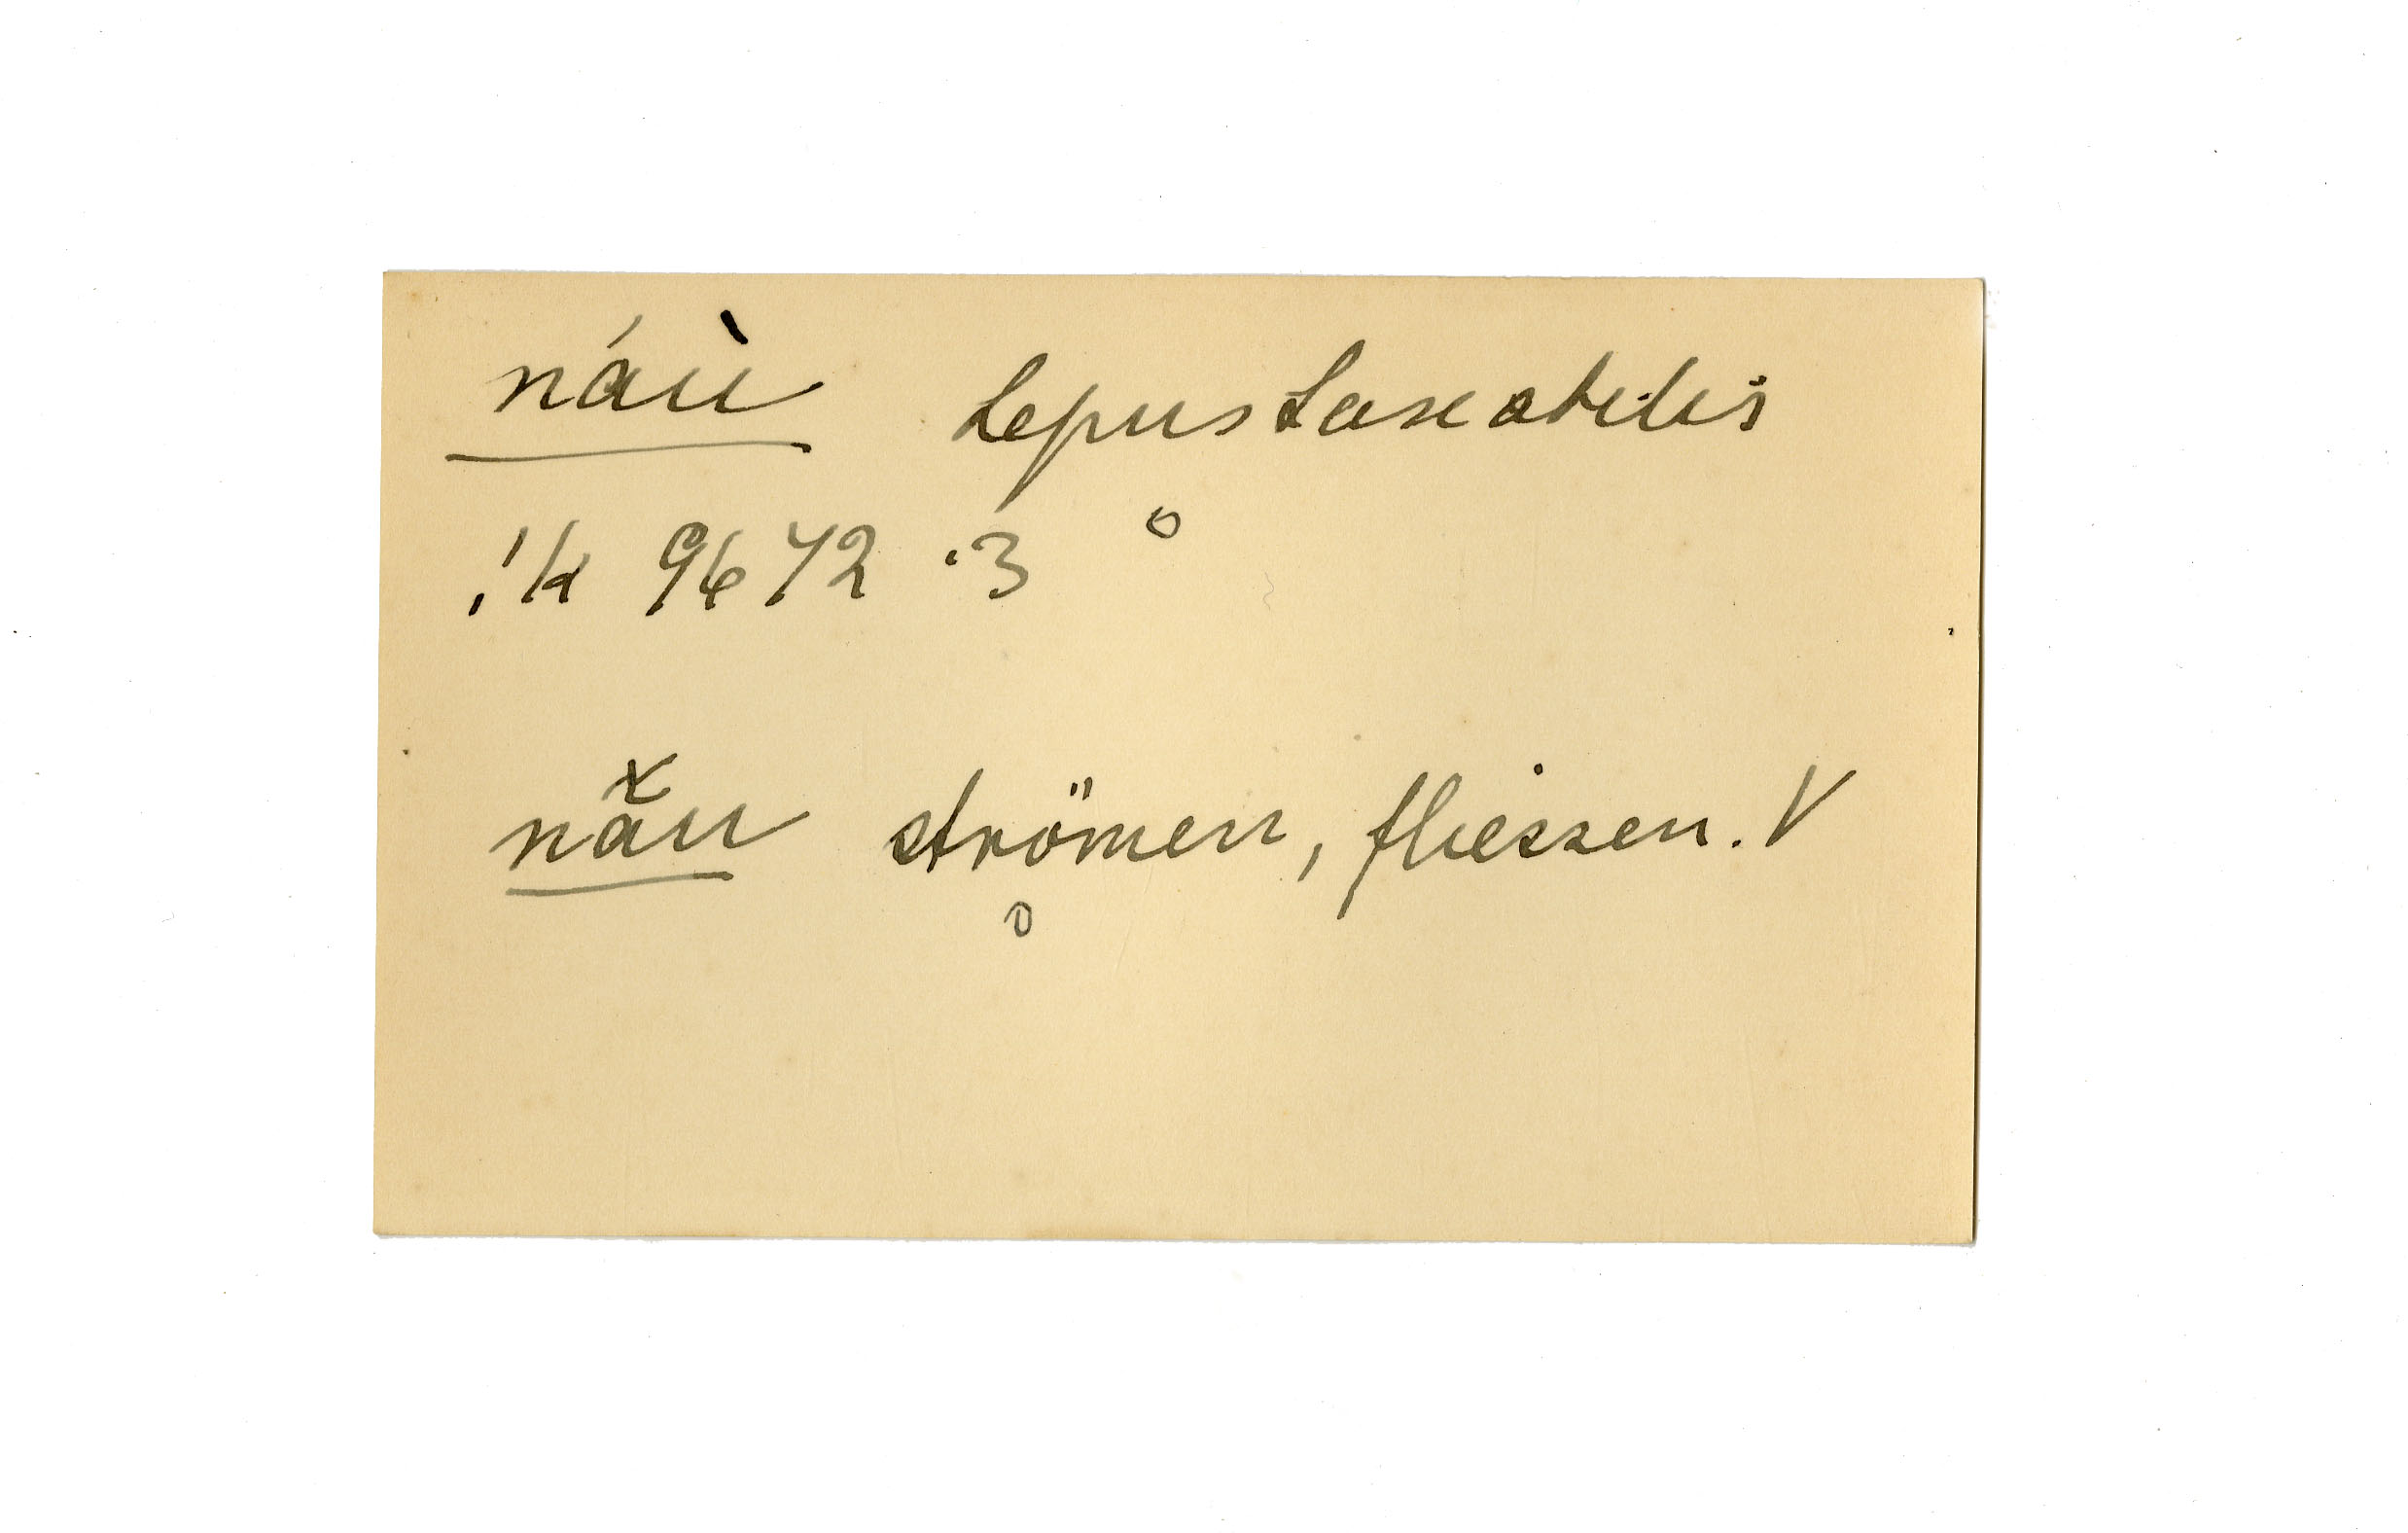 náù Lepus saxatilis
!k 9672 .3 o
nãu strömen, fliessen. V
o